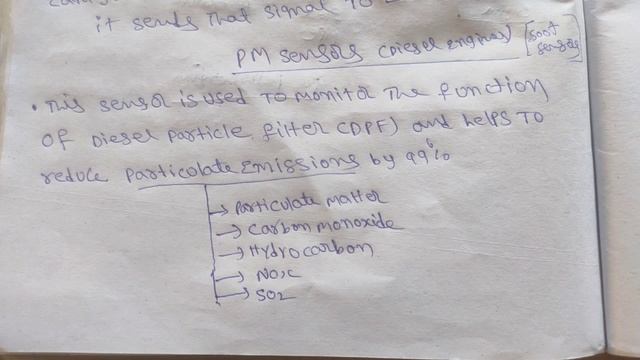 it sends that signal to
PM sensors (Diesel engines) [soot sensors]
• This sensor is used to monitor the function
of Diesel Particle filter (DPF) and helps to
reduce particolate Emissions by 99%
→ Particulate matter
→ Carbon monoxide
→ Hydrocarbon
→ NOx
→ SO2